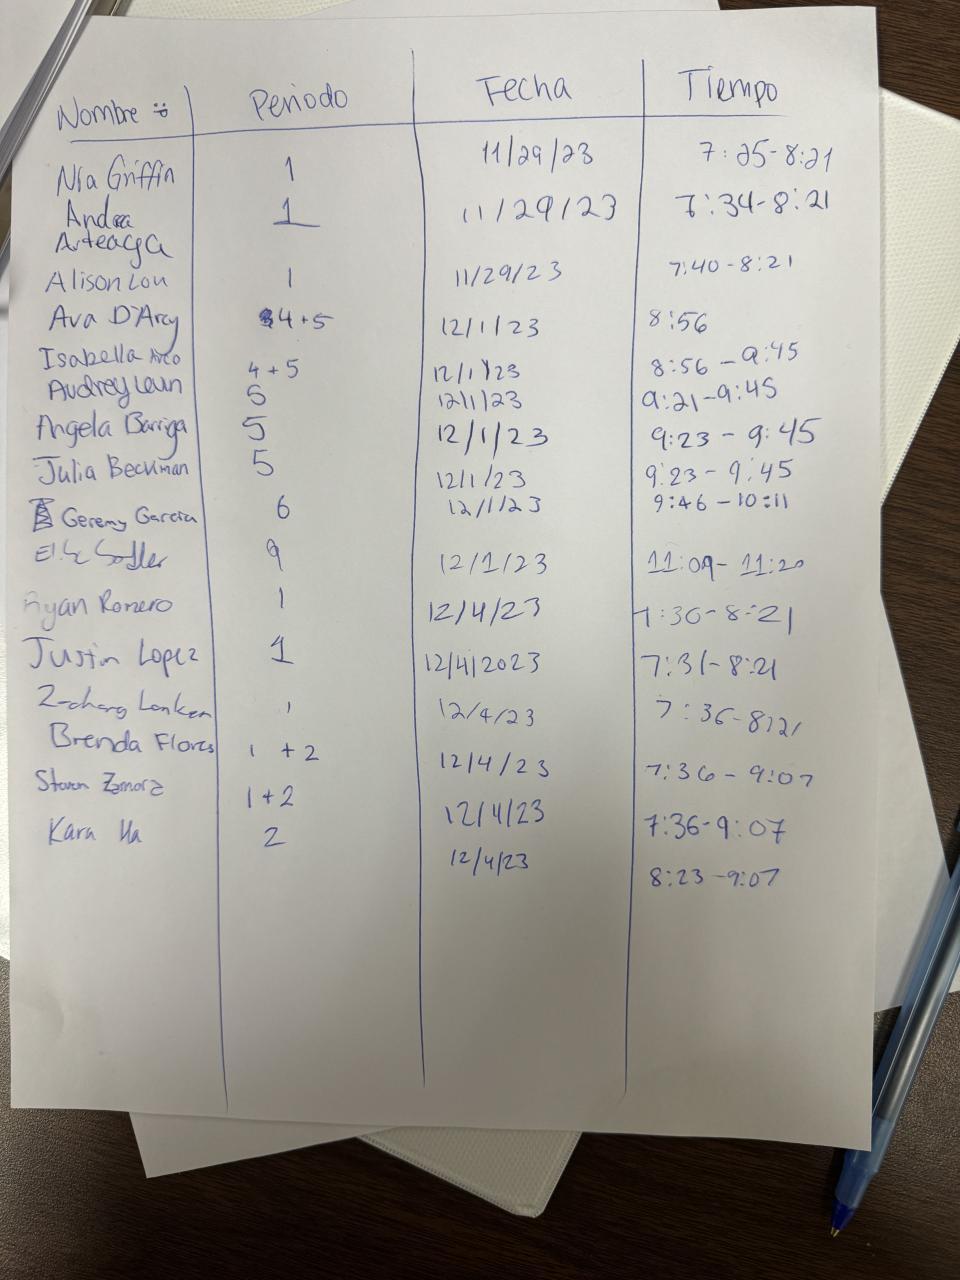 Nombre :) Periodo Fecha Tiempo
Nia Griffin 1 11/29/23 7:25-8:21
Andrea 1 11/29/23 7:34-8:21
Arteaga
Alison Lou 1 11/29/23 7:40-8:21
Ava D'Arcy 4+5 12/1/23 8:56
Isabella Arco 4+5 12/1/23 8:56-9:45
Audrey 5 12/1/23 9:21-9:45
Angela Barriga 5 12/1/23 9:23-9:45
Julia Beckman 5 12/1/23 9:23-9:45
Geremy Garcia 6 12/1/23 9:46-10:11
9 12/1/23 11:09-11:20
Ryan Romero 1 12/4/23 7:30-8:21
Justin Lopez 1 12/4/2023 7:31-8:21
1 12/4/23 7:36-8:21
Brenda Flores 1+2 12/4/23 7:36-9:07
Steven Zamora 1+2 12/4/23 7:36-9:07
Kara Ha 2 12/4/23 8:23-9:07